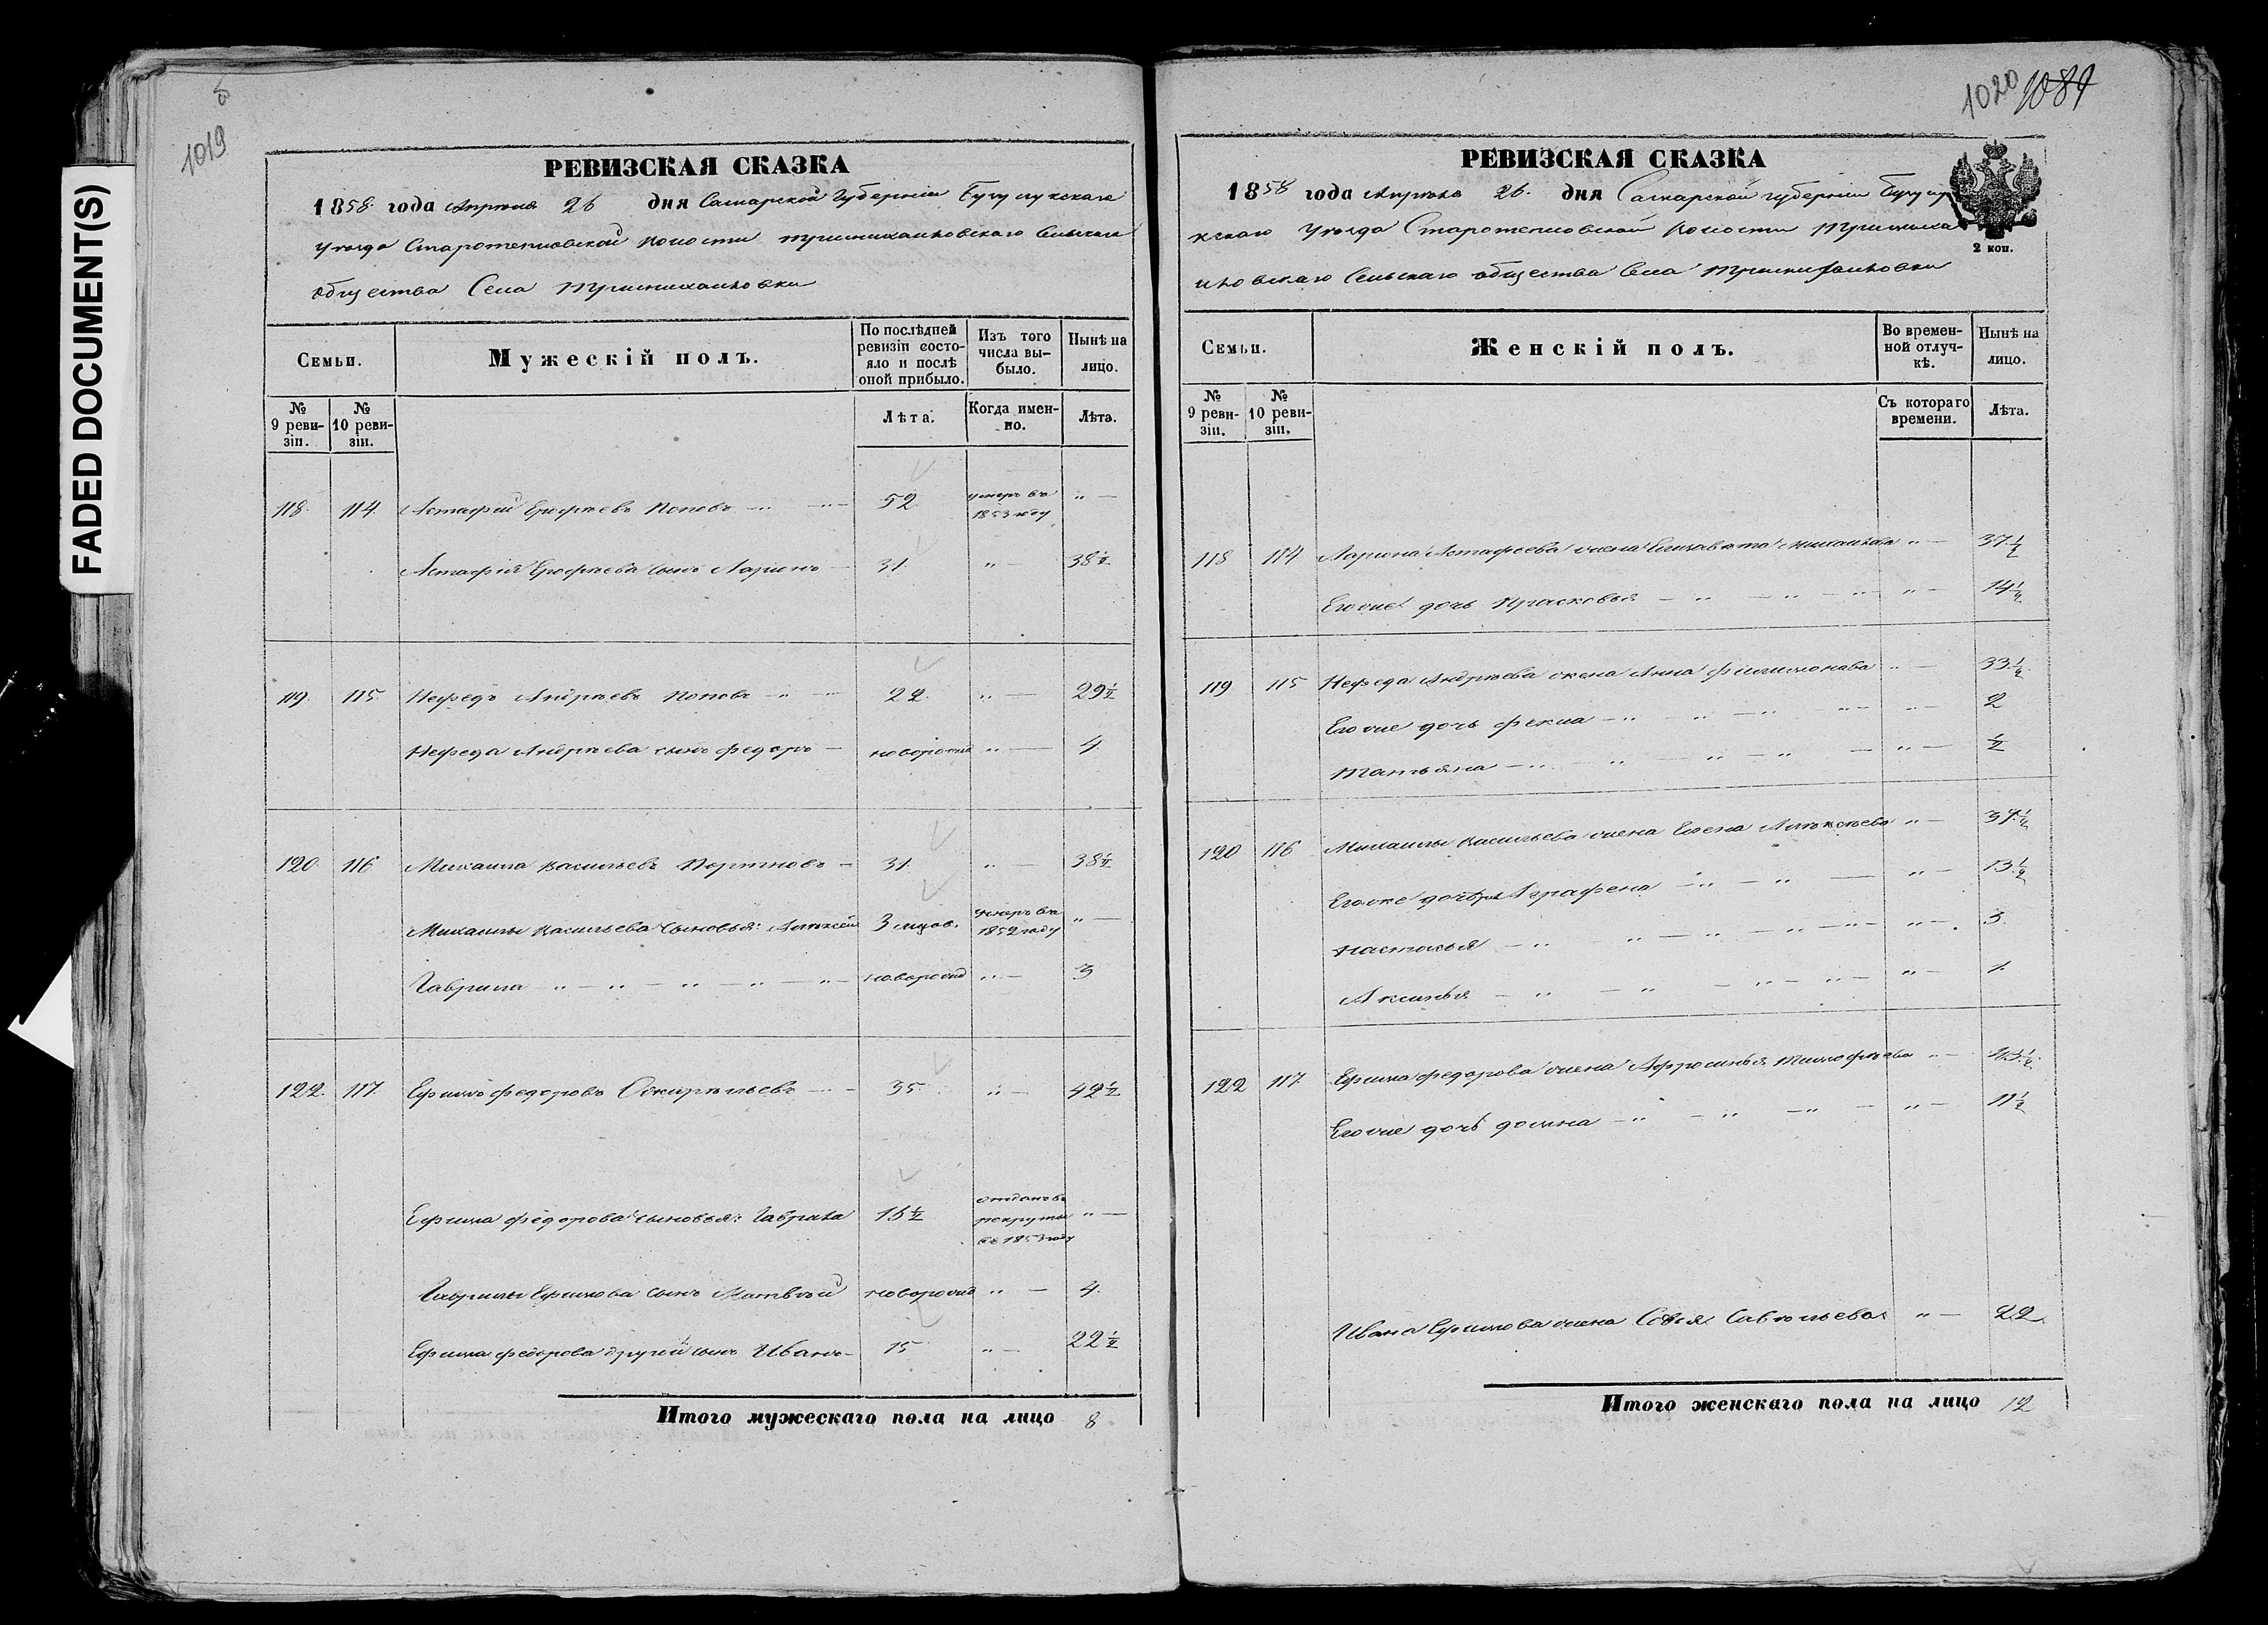 FADED DOCUMENT(S)
1019
РЕВИЗСКАЯ СКАЗКА
1858 года Апреля 26 дня Самарской Губернии Бугурукскаго
уезда Старотепловской волости
общества Села
Семьи.
Мужескій полъ.
По послѣдней ревизіи состояло и послѣ оной прибыло.
Изъ того числа выбыло.
Нынѣ на лицо.
№ 9 ревизіи.
№ 10 ревизіи.
Лѣта.
Когда именно.
Лѣта.
118. 114. Астафій Ерофѣевъ Поповъ 52 умеръ въ 1853 году „ —
Астафія Ерофѣева сынъ Ларіонъ 31. „ — 38½
119. 115. Нефедъ Андрѣевъ Поповъ 22. „ — 29½
Нефеда Андрѣева сынъ Федоръ — новорожд „ — 4
120. 116 Михаила Васильевъ Портновъ — 31. „ — 38½
Михаилы Васильева сыновья: Алексѣй 3 мцов. умеръ въ 1852 году „ —
Гаврила новорожд „ — 3
122. 117. Ефимъ Федоровъ 35 „ — 42½
Ефима Федорова сыновья: Гаврила 16½ отданъ въ рекруты въ 1853 году „ —
Гаврилы Ефимова сынъ Матвѣй новорожд „ — 4.
Ефима Федорова другой сынъ Иванъ 15 „ — 22½
Итого мужескаго пола на лицо 8
1020 1089
РЕВИЗСКАЯ СКАЗКА
1858 года Апреля 26. дня Самарской губерніи
2 коп.
уезда Старотепловской волости
Сельскаго общества Села
Семьи.
Женскій полъ.
Во временной отлучкѣ.
Нынѣ на лицо.
№ 9 ревизіи.
№ 10 ревизіи.
Съ котораго времени.
Лѣта.
118 114 Лариона Астафеева жена Елизавета Михайлова „ — 37½
Егоже дочь Прасковья „ — 14½
119 115 Нефеда Андрѣева жена Анна Филимонова „ — 33½
Егоже дочь Фекла „ — 2
Татьяна „ — ½
120 116 Михаилы Васильева жена Елена Алексѣева „ —
Егоже Аграфена „ — 13½
Настасья „ — 3.
Аксинья „ — 1.
122 117. Ефима Федорова жена Афросинья Тимофѣева „ —
Егоже дочь Домна „ — 11½
Ивана Ефимова жена Савельева „ — 22.
Итого женскаго пола на лицо 12